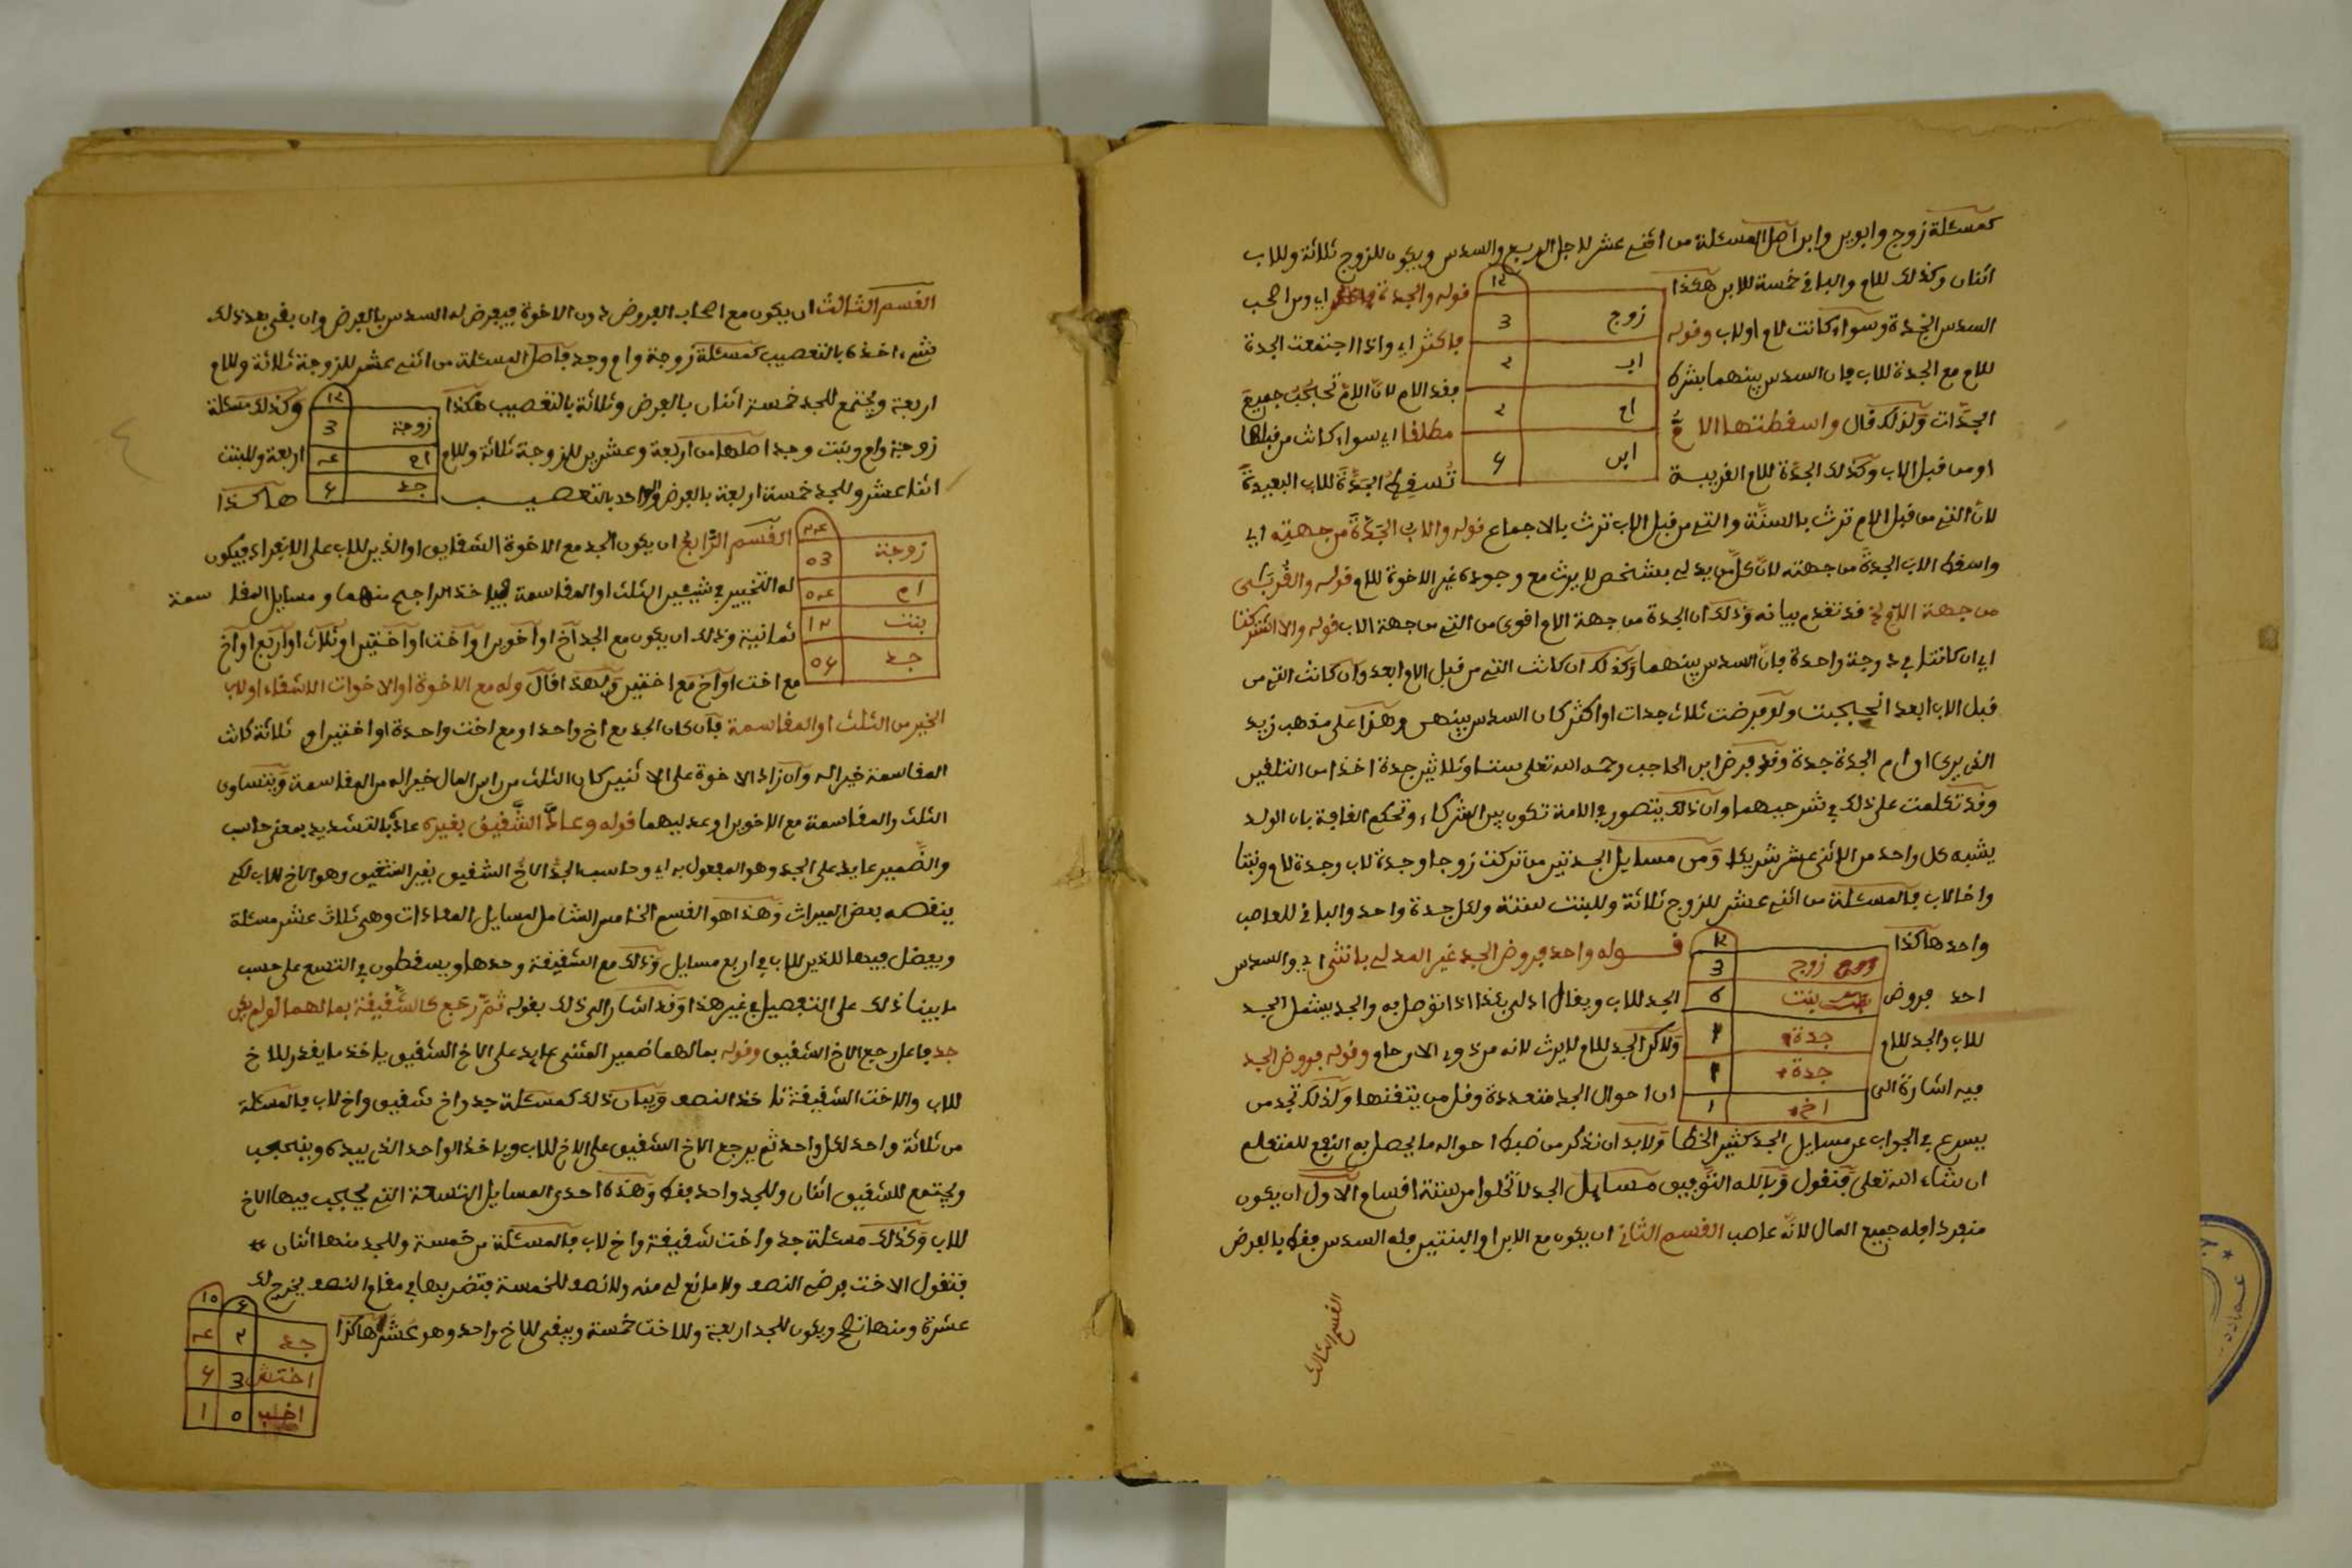 كمسئلة زوج وابوين وابن اصل المسئلة من اثني عشر لاجل الربع والسدس ويكون للزوج ثلاثة وللاب
اثنان وكذلك للام والباقي خمسة للابن هكذا
١٢
زوج 3
اب ٢
ام ٢
ابن
قوله والجدة اي ومن اصحب
السدس الجدة وسواء كانت لام او لاب وقوله فاكثر اي واذا اجتمعت الجدة
للام مع الجدة للاب فان السدس بينهما بشرط فقد الام لان الام تحجب جميع
الجدات ولذلك قال واسقطتها الام مطلقا اي سواء كانت من قبلها
او من قبل الاب وكذلك الجدة للام القريبة تسقط الجدة للاب البعيدة
لان التي من قبل الام ترث بالسنة والتي من قبل الاب ترث بالاجماع قوله والاب الجدة من جهته اي
واسقط الاب الجدة من جهته لان كل من يدلي بشخص لا يرث مع وجوده غير الاخوة للام قوله والقربى
من جهة الام قد تقدم بيانه وذلك ان الجدة من جهة الام اقوى من التي من جهة الاب قوله والا اشتركتا
اي ان كانتا في درجة واحدة فان السدس بينهما وكذلك ان كانت التي من قبل الام ابعد وان كانت التي من
قبل الاب ابعد حجبت ولو فرضت ثلاث جدات او اكثر كان السدس بينهن وهذا على مذهب زيد
الذي يرى ان ام الجدة جدة وقد فرض ابن الحاجب رحمه الله تعلى ستا وثلاثين جدة اخذا من التلقين
وقد تكلمت على ذلك في شرحيهما وان ذلك يتصور في الامة تكون بين الشركاء وتحكم القافة بان الولد
يشبه كل واحد من الاثني عشر شريكا ومن مسايل الجدتين من تركت زوجا وجدة لاب وجدة لام وبنتا
واخا لاب فالمسئلة من اثني عشر للزوج ثلاثة وللبنت ستة ولكل جدة واحد والباقي للعاصب
واحد هاكذا
١٢
زوج 3
بنت 6
جدة ١
جدة ١
اخ ١
قوله واحد فروض الجد غير المدلي بانثى اي والسدس
احد فروض الجد للاب ويقال ادلى بكذا اذا توصل به والجد يشمل الجد
للاب والجد للام ولاكن الجد للام لا يرث لانه من ذوي الارحام وقوله فروض الجد
فيه اشارة الى ان احوال الجد متعددة وقل من يتقنها ولذلك تجد من
يسرع في الجواب عن مسايل الجد كثير الخطا ولا بد ان نذكر من ضبط احواله ما يحصل به النفع للمتعلم
ان شاء الله تعلى فنقول وبالله التوفيق مسايل الجد لا تخلوا من ستة اقسام الاول ان يكون
منفردا فله جميع المال لانه عاصب القسم الثاني ان يكون مع الابن او البنتين فله السدس فقط بالفرض
القسم الثالث
القسم الثالث ان يكون مع اصحاب الفروض دون الاخوة فيفرض له السدس بالفرض وان بقي بعد ذلك
شيء اخذه بالتعصيب كمسئلة زوجة وام وجد فاصل المسئلة من اثني عشر للزوجة ثلاثة وللام
اربعة ويجتمع للجد خمسة اثنان بالفرض وثلاثة بالتعصيب هكذا
١٢
زوجة 3
ام
جد
وكذلك مسئلة
زوجة وام وبنت وجد اصلها من اربعة وعشرين للزوجة ثلاثة وللام اربعة وللبنت
اثنا عشر وللجد خمسة اربعة بالفرض والواحد بالتعصيب هاكذا
زوجة
ام
بنت ١٢
جد
القسم الرابع ان يكون الجد مع الاخوة الشقايق او الذين للاب على الانفراد فيكون
له التخيير في شيئين الثلث او المقاسمة فياخذ الراجح منهما ومسايل المقاسمة
ثمانية وذلك ان يكون مع الجد اخ او اخوين او اخت او اختين او ثلاث او اربع او اخ
مع اخت او اخ مع اختين ولهذا قال وله مع الاخوة او الاخوات الاشقاء او لاب
الخير من الثلث او المقاسمة فان كان الجد مع اخ واحد او مع اخت واحدة او اختين او ثلاثة كانت
المقاسمة خيرا له وان زاد الاخوة على الاثنين كان الثلث من راس المال خيرا له من المقاسمة ويتساوى
الثلث والمقاسمة مع الاخوين او عدليهما قوله وعاد الشقيق بغيره عاد بالتشديد بمعنى حاسب
والضمير عايد على الجد وهو المفعول به اي وحاسب الجد الاخ الشقيق بغير الشقيق وهو الاخ للاب لكي
ينقصه بعض الميراث وهذا هو القسم الخامس الشامل لمسايل المعادات وهي ثلاث عشر مسئلة
ويفضل فيها للذين للاب في اربع مسايل وذلك مع الشقيقة وحدها ويسقطون في التسع على حسب
ما بينا ذلك على التفصيل في غير هذا وقد اشار الى ذلك بقوله ثم رجع كالشقيقة بما لهما لو لم يكن
جد فاعل رجع الاخ الشقيق وقوله بما لهما ضمير المثنى عايد على الاخ الشقيق ياخذ ما يقدر للاخ
للاب والاخت الشقيقة تاخذ النصف وبيان ذلك كمسئلة جد واخ شقيق واخ لاب فالمسئلة
من ثلاثة واحد لكل واحد ثم يرجع الاخ الشقيق على الاخ للاب وياخذ الواحد الذي بيده وينحجب
ويجتمع للشقيق اثنان وللجد واحد فقط وهذه احدى المسايل التسعة التي يحجب فيها الاخ
للاب وكذلك مسئلة جد واخت شقيقة واخ لاب فالمسئلة من خمسة وللجد منها اثنان
فتقول الاخت فرضي النصف ولا مانع لي منه ولا نصف للخمسة فتضربها في مقام النصف يخرج لك
عشرة ومنها تصح ويكون للجد اربعة وللاخت خمسة ويبقى للاخ واحد وهو عشر هاكذا
جد ٢
اخت ش 3
اخ لب ٥ ١